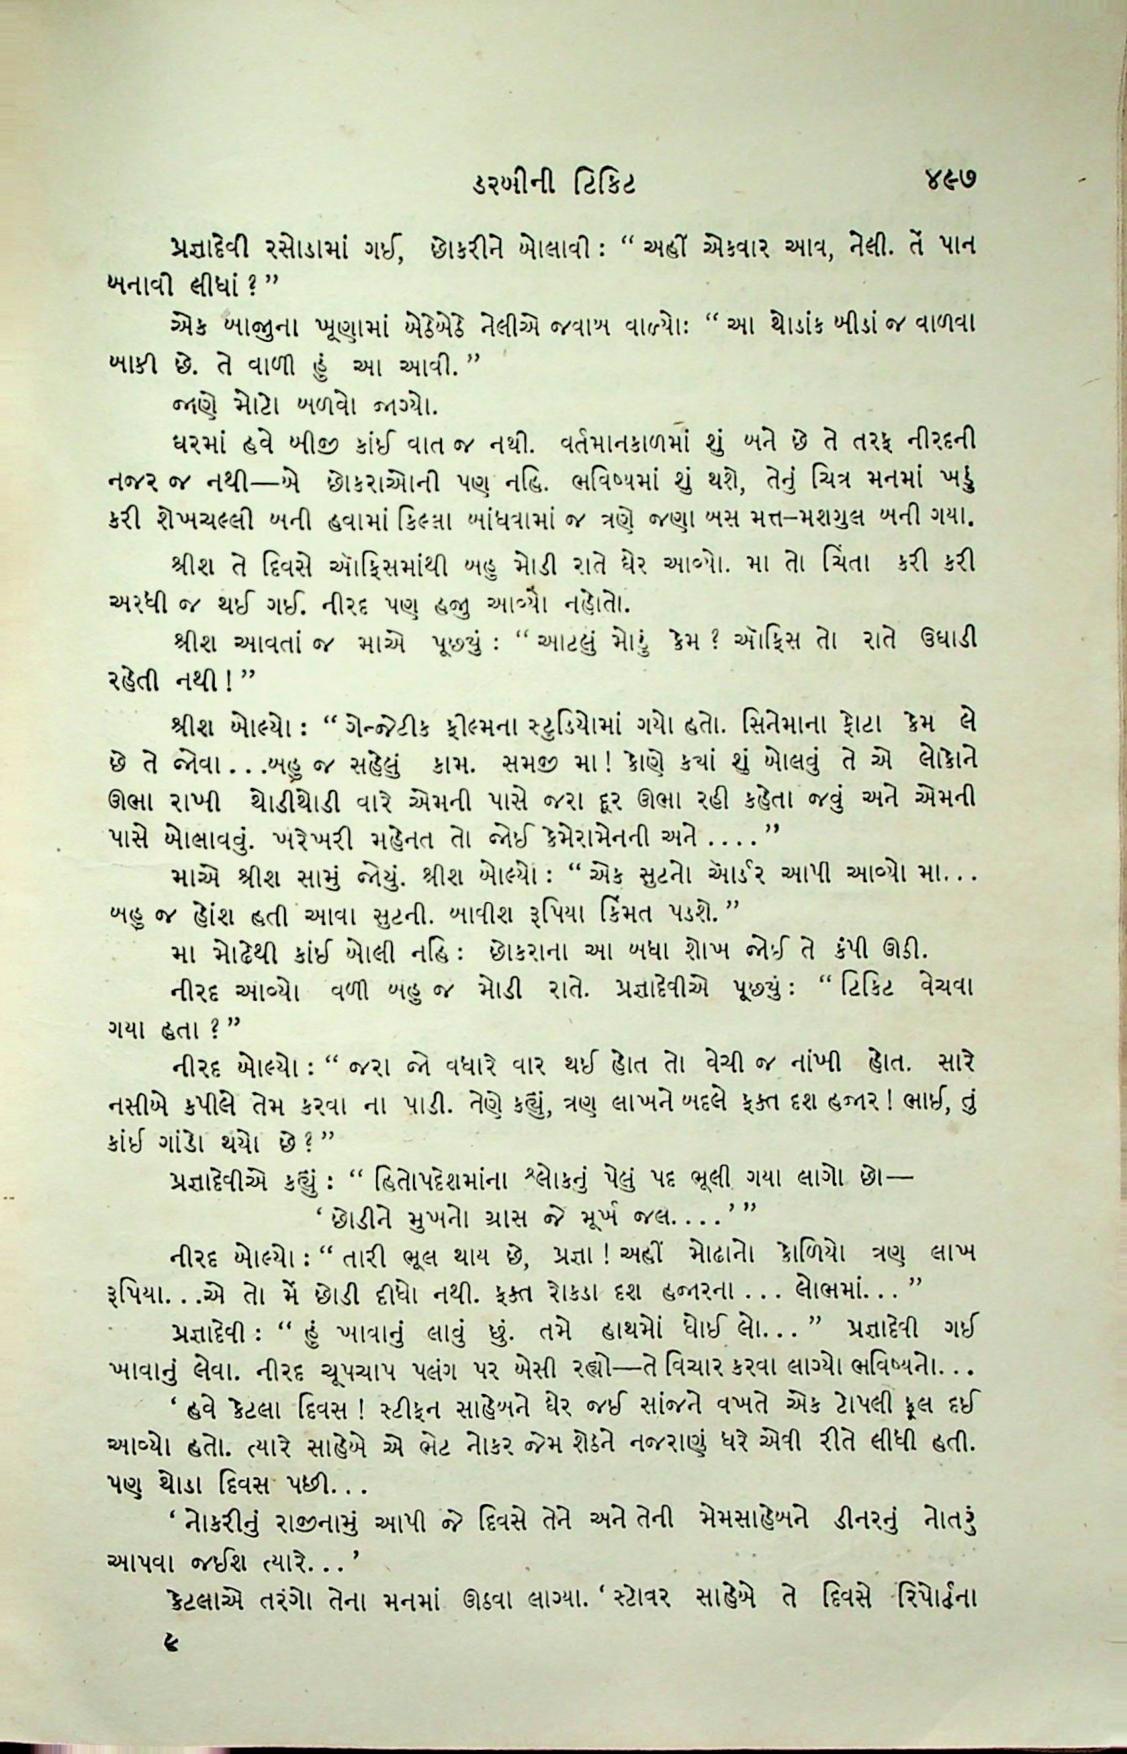 ડરબીની ટિકિટ ૪૯૭
પ્રજ્ઞાદેવી રસોડામાં ગઈ, છોકરીને બોલાવી : “ અહીં એકવાર આવ, નેલી. તેં પાન
બનાવી લીધાં ? ”
એક બાજુના ખૂણામાં બેઠેબેઠે નેલીએ જવાબ વાળ્યોઃ “ આ થોડાંક બીડાં જ વાળવા
બાકી છે. તે વાળી હું આ આવી. ”
જાણે મોટો બળવો જાગ્યો.
ઘરમાં હવે બીજી કાંઈ વાત જ નથી. વર્તમાનકાળમાં શું બને છે તે તરફ નીરદની
નજર જ નથી—એ છોકરાઓની પણ નહિ. ભવિષ્યમાં શું થશે, તેનું ચિત્ર મનમાં ખડું
કરી શેખચલ્લી બની હવામાં કિલ્લા બાંધવામાં જ ત્રણે જણા બસ મત્ત–મશગુલ બની ગયા.
શ્રીશ તે દિવસે ઑફિસમાંથી બહુ મોડી રાતે ઘેર આવ્યો. મા તો ચિંતા કરી કરી
અરધી જ થઈ ગઈ. નીરદ પણ હજુ આવ્યો નહોતો.
શ્રીશ આવતાં જ માએ પૂછ્યું : “ આટલું મોડું કેમ ? ઑફિસ તો રાતે ઉઘાડી
રહેતી નથી ! ”
શ્રીશ બોલ્યો : “ ગેન્જેટીક ફીલ્મના સ્ટુડિયોમાં ગયો હતો. સિનેમાના ફોટા કેમ લે
છે તે જોવા...બહુ જ સહેલું કામ. સમજી મા ! કોણે કયાં શું બોલવું તે એ લોકોને
ઊભા રાખી થોડીથોડી વારે એમની પાસે જરા દૂર ઊભા રહી કહેતા જવું અને એમની
પાસે બોલાવવું. ખરેખરી મહેનત તો જોઈ કેમેરામેનની અને .... ”
માએ શ્રીશ સામું જોયું. શ્રીશ બોલ્યો : “ એક સુટનો ઑર્ડર આપી આવ્યો મા...
બહુ જ હોંશ હતી આવા સુટની. બાવીશ રૂપિયા કિંમત પડશે. ”
મા મોઢેથી કાંઈ બોલી નહિ : છોકરાના આ બધા શોખ જોઈ તે કંપી ઊઠી.
નીરદ આવ્યો વળી બહુ જ મોડી રાતે. પ્રજ્ઞાદેવીએ પૂછ્યું : “ ટિકિટ વેચવા
ગયા હતા ? ”
નીરદ બોલ્યો : “ જરા જો વધારે વાર થઈ હોત તો વેચી જ નાંખી હોત. સારે
નસીબે કપીલે તેમ કરવા ના પાડી. તેણે કહ્યું, ત્રણ લાખને બદલે ફક્ત દશ હજાર ! ભાઈ, તું
કાંઈ ગાંડો થયો છે ? ”
પ્રજ્ઞાદેવીએ કહ્યું : “ હિતોપદેશમાંના શ્લોકનું પેલું પદ ભૂલી ગયા લાગો છો—
‘ છોડીને મુખનો ગ્રાસ જે મૂર્ખ જલ.... ’ ”
નીરદ બોલ્યો : “ તારી ભૂલ થાય છે, પ્રજ્ઞા ! અહીં મોઢાનો કોળિયો ત્રણ લાખ
રૂપિયા...એ તો મેં છોડી દીધો નથી. ફક્ત રોકડા દશ હજારના ... લોભમાં... ”
પ્રજ્ઞાદેવી : “ હું ખાવાનું લાવું છું. તમે હાથમોં ધોઈ લો... ” પ્રજ્ઞાદેવી ગઈ
ખાવાનું લેવા. નીરદ ચૂપચાપ પલંગ પર બેસી રહ્યો—તે વિચાર કરવા લાગ્યો ભવિષ્યનો...
‘ હવે કેટલા દિવસ ! સ્ટીફન સાહેબને ઘેર જઈ સાંજને વખતે એક ટોપલી ફૂલ દઈ
આવ્યો હતો. ત્યારે સાહેબે એ ભેટ નોકર જેમ શેઠને નજરાણું ધરે એવી રીતે લીધી હતી.
પણ થોડા દિવસ પછી...
‘ નોકરીનું રાજીનામું આપી જે દિવસે તેને અને તેની મેમસાહેબને ડીનરનું નોતરું
આપવા જઈશ ત્યારે... ’
કેટલાએ તરંગો તેના મનમાં ઊઠવા લાગ્યા. ‘ સ્ટોવર સાહેબે તે દિવસે રિપોર્ટના
૯